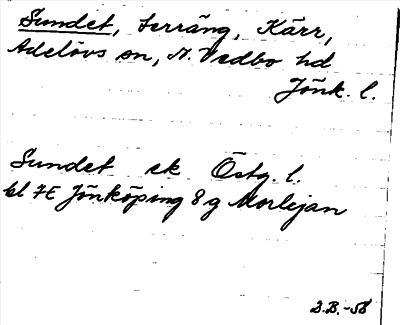 Sundet, terräng, Kärr,
Adelövs sn, N. Vedbo hd
Jönk. l.
Sundet ek Östg. l.
bl 7E Jönköping 8 g Morlejan
B.B.-58